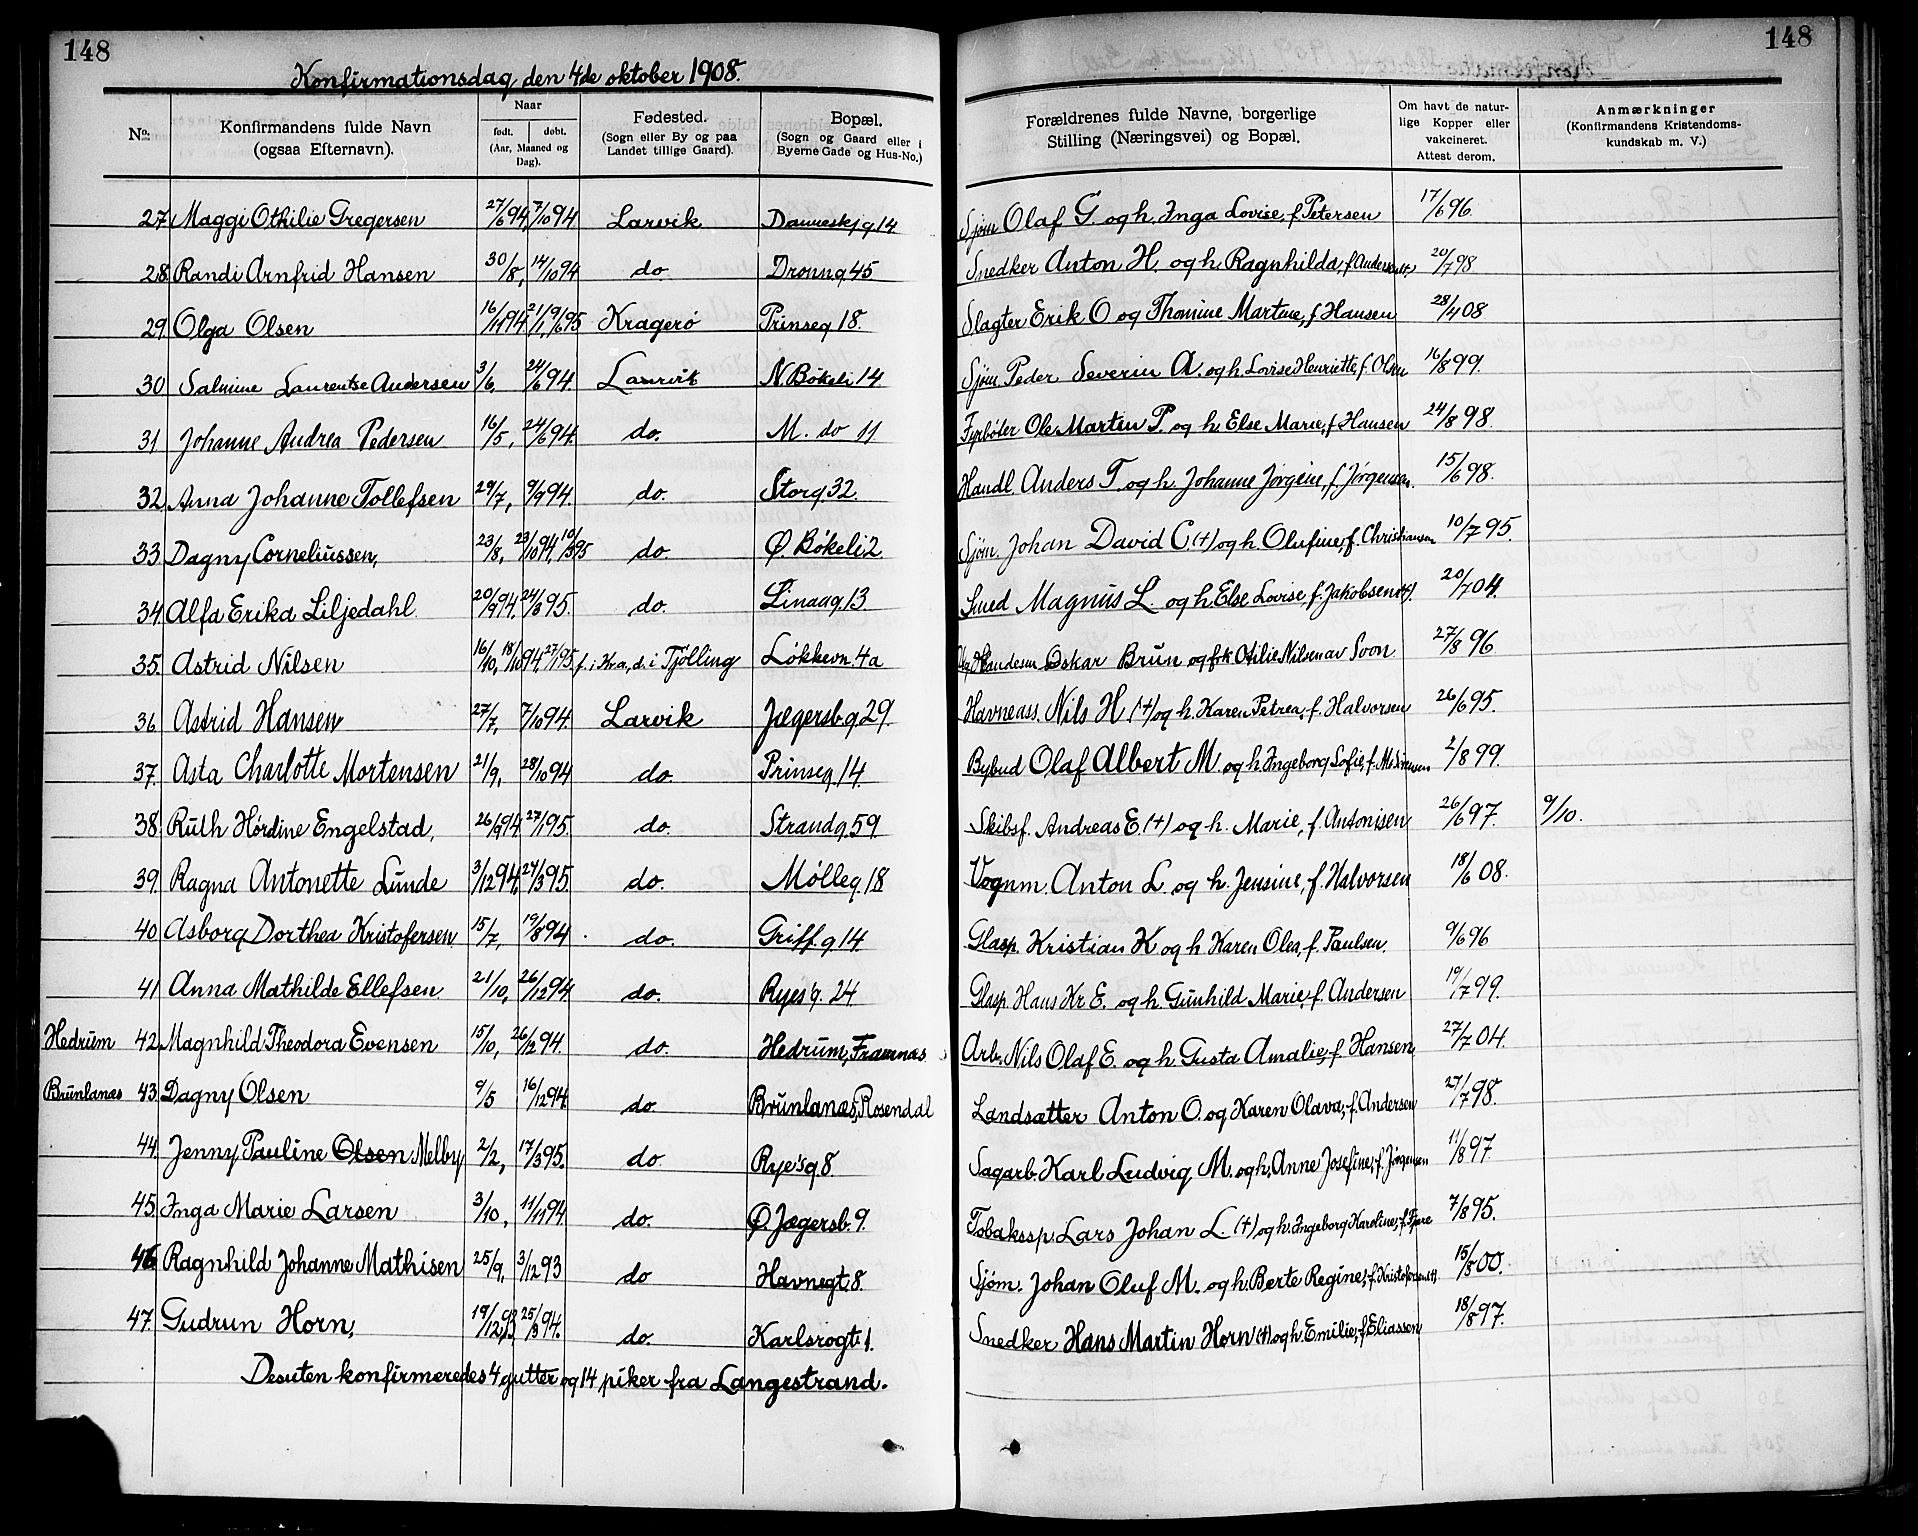 148
148
Konfirmationsdag den 4de oktober 1908.
No. | Konfirmandens fulde Navn (ogsaa Efternavn). | Naar født. døbt. (Aar, Maaned og Dag). | Fødested. (Sogn eller By og paa Landet tillige Gaard). | Bopæl. (Sogn og Gaard eller i Byerne Gade og Hus-No.) | Forældrenes fulde Navne, borgerlige Stilling (Næringsvei) og Bopæl. | Om havt de naturlige Kopper eller vakcineret. Attest derom. | Anmærkninger (Konfirmandens Kristendomskundskab m. V.)
27 Maggi Othilie Gregersen 27/6 94, 7/10 94 Larvik Danneskj.g 14 Sjøm Olaf G. og h. Inga Lovise, f. Petersen 17/6 96.
28 Randi Arnfrid Hansen 30/8, 14/10 94 do Dronng 45 Snedker Anton H. og h. Ragnhilda, f. Andersen (+) 20/7 98
29. Olga Olsen 16/11 94 Kragerø Prinseg 18. Slagter Erik O og Thomine Martine, f Hansen 28/4 08
30 Salmine Laurentse Andersen 3/6, 24/6 94. Larvik N Bøkeli 14 Sjøm. Peder Severin A. og h. Lovise Henriette f. Olsen 16/8 99.
31 Johanne Andrea Pedersen 16/5, 24/6 94. do. M. do 11 Fyrbøter Ole Martin P. og h. Else Marie, f Hansen 24/8 98.
32. Anna Johanne Tollefsen 29/7, 9/9 94. do. Storg. 32. Handl. Anders T. og h. Johanne Jørgine, f. Jørgensen. 15/6 98.
33. Dagny Corneliussen, 23/8, 23/10 94, do. Ø. Bøkeli 2. Sjøm. Johan David C. (+) og h. Olufine, f. Christiansen 10/7 95.
34. Alfa Erika Liljedahl. 20/9 94. 24/3 95. do. Linaag. 13. Smed Magnus L. og h. Else Lovise, f. Jakobsen (+). 20/7 04.
35. Astrid Nilsen 16/10, 18/10 94, 27/1 95. f. i Kra, d. i Tjølling Løkkevn. 4a Oskar Brun og frk Otilie Nilsen av Soon 27/8 96
36 Astrid Hansen 27/7, 7/10 94. Larvik Jægersb.g 29. Havneass. Nils H (+) og h. Karen Petrea, f. Halvorsen 26/6 95.
37. Asta Charlotte Mortensen 21/9, 28/10 94 do. Prinseg. 14. Bybud Olaf Albert M. og h. Ingeborg Sofie, f. 2/8 99.
38. Ruth Hørdine Engelstad, 26/9 94 27/1 95. do. Strandg. 59 Skibsf. Andreas E. (+) og h. Marie, f. Antonisen 26/6 97. 9/10.
39. Ragna Antonette Lunde 3/12 94, 24/3 95. do. Mølleg. 18 Vognm. Anton L. og h. Jensine, f. Halvorsen 18/6 08.
40 Asborg Dorthea Kristofersen 15/7, 19/8 94 do. Griff.g 14. Glasp. Kristian K og h. Karen Olea, f. Paulsen. 9/6 96
41 Anna Mathilde Ellefsen 21/10, 26/12 94 do. Ryes'g. 24 Glasp. Hans Kr E. og h. Gunhild Marie, f. Andersen 19/7 99.
Hedrum 42. Magnhild Theodora Evensen 15/10, 26/12 94. do. Hedrum, Framnæs Arb. Nils Olaf E. og h. Gusta Amalie, f. Hansen 27/7 04.
Brunlanæs 43. Dagny Olsen 9/5 16/12 94. do Brunlanæs, Rosendal Landsatter Anton O. og Karen Olava, f. Andersen 27/7 98.
44. Jenny Pauline Olsen Melby 2/2, 17/3 95. do. Ryes'g 8 Sagarb. Karl Ludvig M. og h. Anne Josefine, f. Jørgensen 11/8 97
45. Inga Marie Larsen 3/10, 11/11 94 do. Ø. Jægersb. 9. Tobakssp. Lars Johan L. (+) og h. Ingeborg Karoline, f. 7/8 95.
46 Ragnhild Johanne Mathisen 25/9, 3/12 93 do Havnegt. 8. Sjøm. Johan Oluf M. og h. Berte Regine, f. Kristofersen (+) 15/8 00.
47. Gudrun Horn, 19/12 93, 25/3 94. do. Karlsrogt 1. Snedker Hans Martin Horn (+) og h Emilie, f. Eliassen 18/8 97.
Desuten konfirmeredes 4 gutter og 14 piker fra Langestrand.